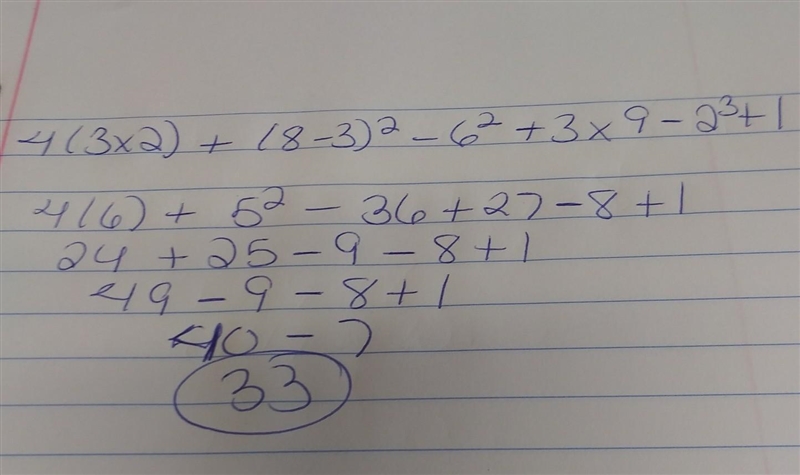 4(3×2) + (8-3)² - 6² + 3 × 9 - 2³ + 1
4(6) + 5² - 36 + 27 - 8 + 1
24 + 25 - 9 - 8 + 1
49 - 9 - 8 + 1
40 - 7
33